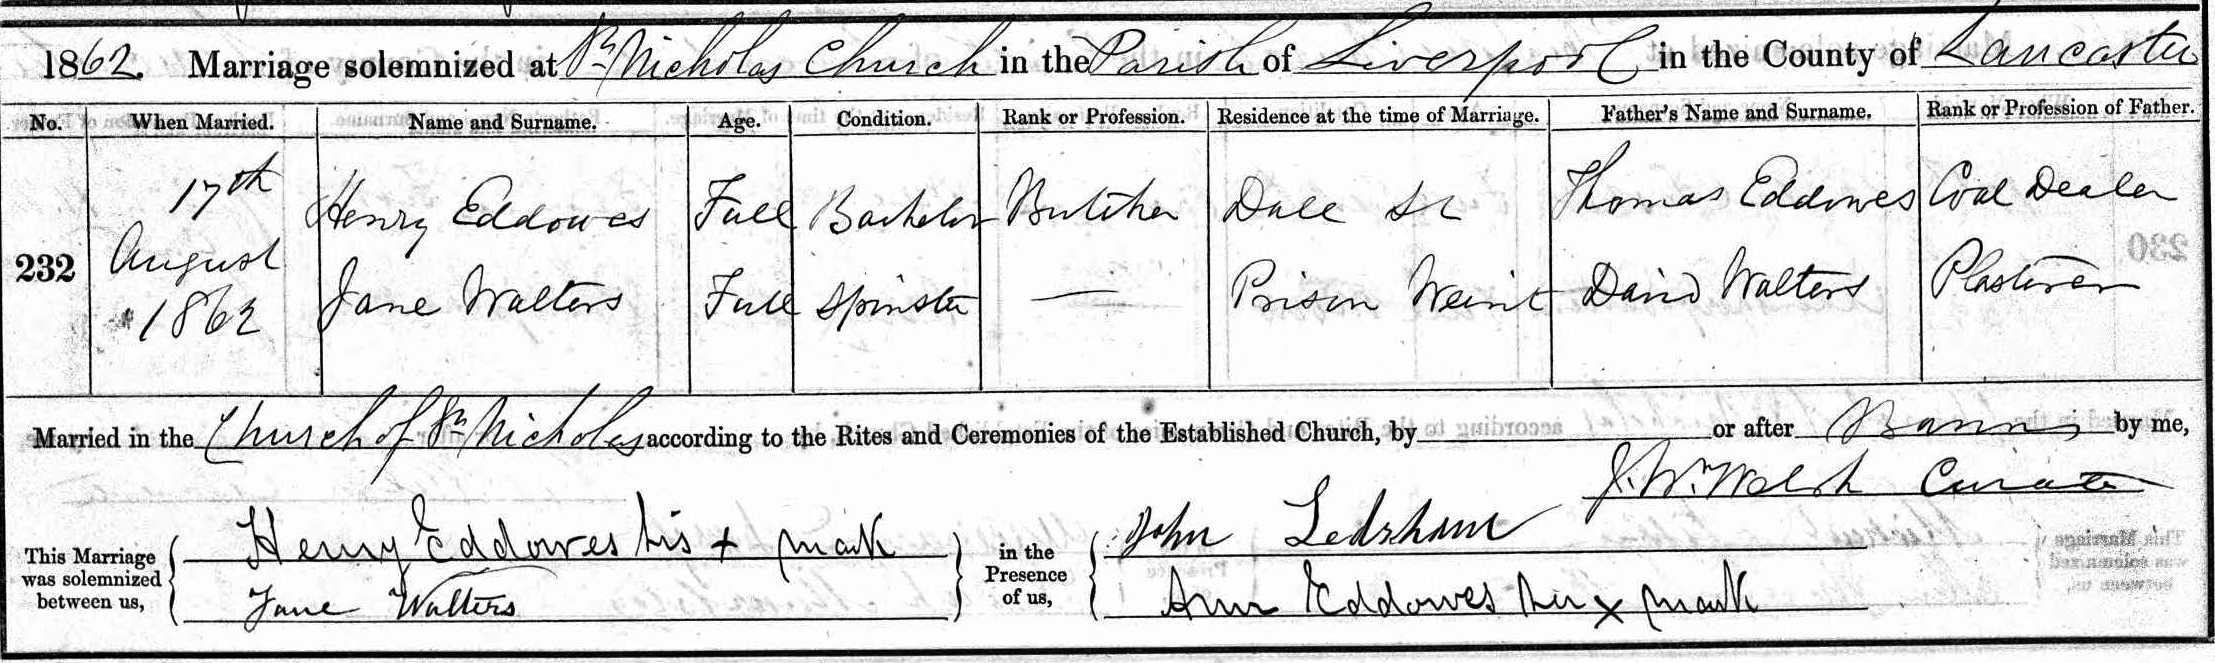 1862. Marriage solemnized at St. Nicholas Church in the Parish of Liverpool in the County of Lancaster
No. When Married. Name and Surname. Age. Condition. Rank or Profession. Residence at the time of Marriage. Father's Name and Surname. Rank or Profession of Father.
17th Henry Eddowes Full Bachelor Butcher Dale St Thomas Eddowes Coal Dealer
232 August Jane Walters Full Spinster — Prison Weint David Walters Plasterer
1862
Married in the Church of St. Nicholas according to the Rites and Ceremonies of the Established Church, by or after Banns by me,
J. Wm. Welsh Curate
This Marriage was solemnized between us, Henry Eddowes his + mark in the Presence of us, John Ledsham
Jane Walters Ann Eddowes her x mark